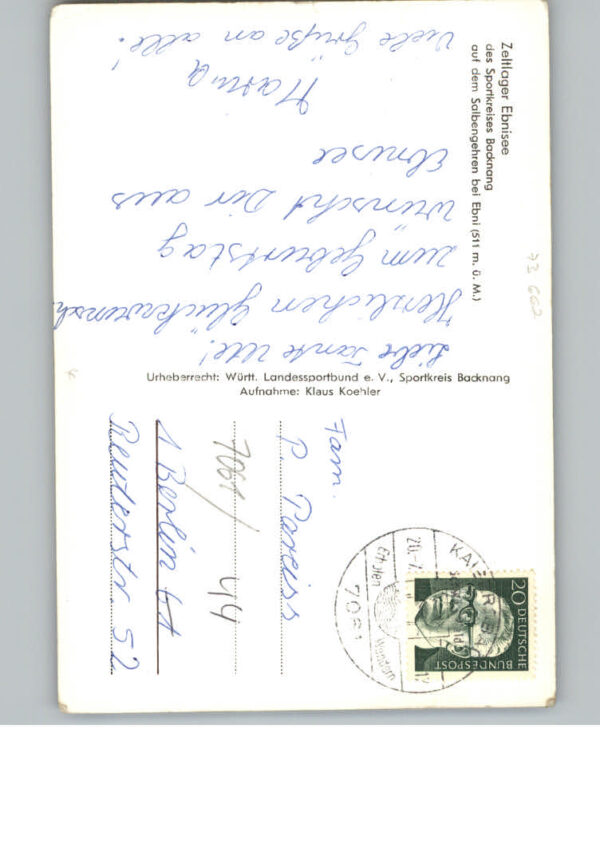 Zeltlager Ebnisee
des Sportkreises Backnang
auf dem Salbengehren bei Ebni (511 m. ü. M.)
Liebe Tante Ute!
Herzlichen Glückwunsch
zum Geburtstag
wünscht Dir aus
Ebnisee
Viele Grüße an alle!
Urheberrecht: Württ. Landessportbund e. V., Sportkreis Backnang
Aufnahme: Klaus Koehler
Fam.
P.
7061/
44
1 Berlin 61
Reuterstr 52
7061
20
DEUTSCHE
BUNDESPOST
73 662